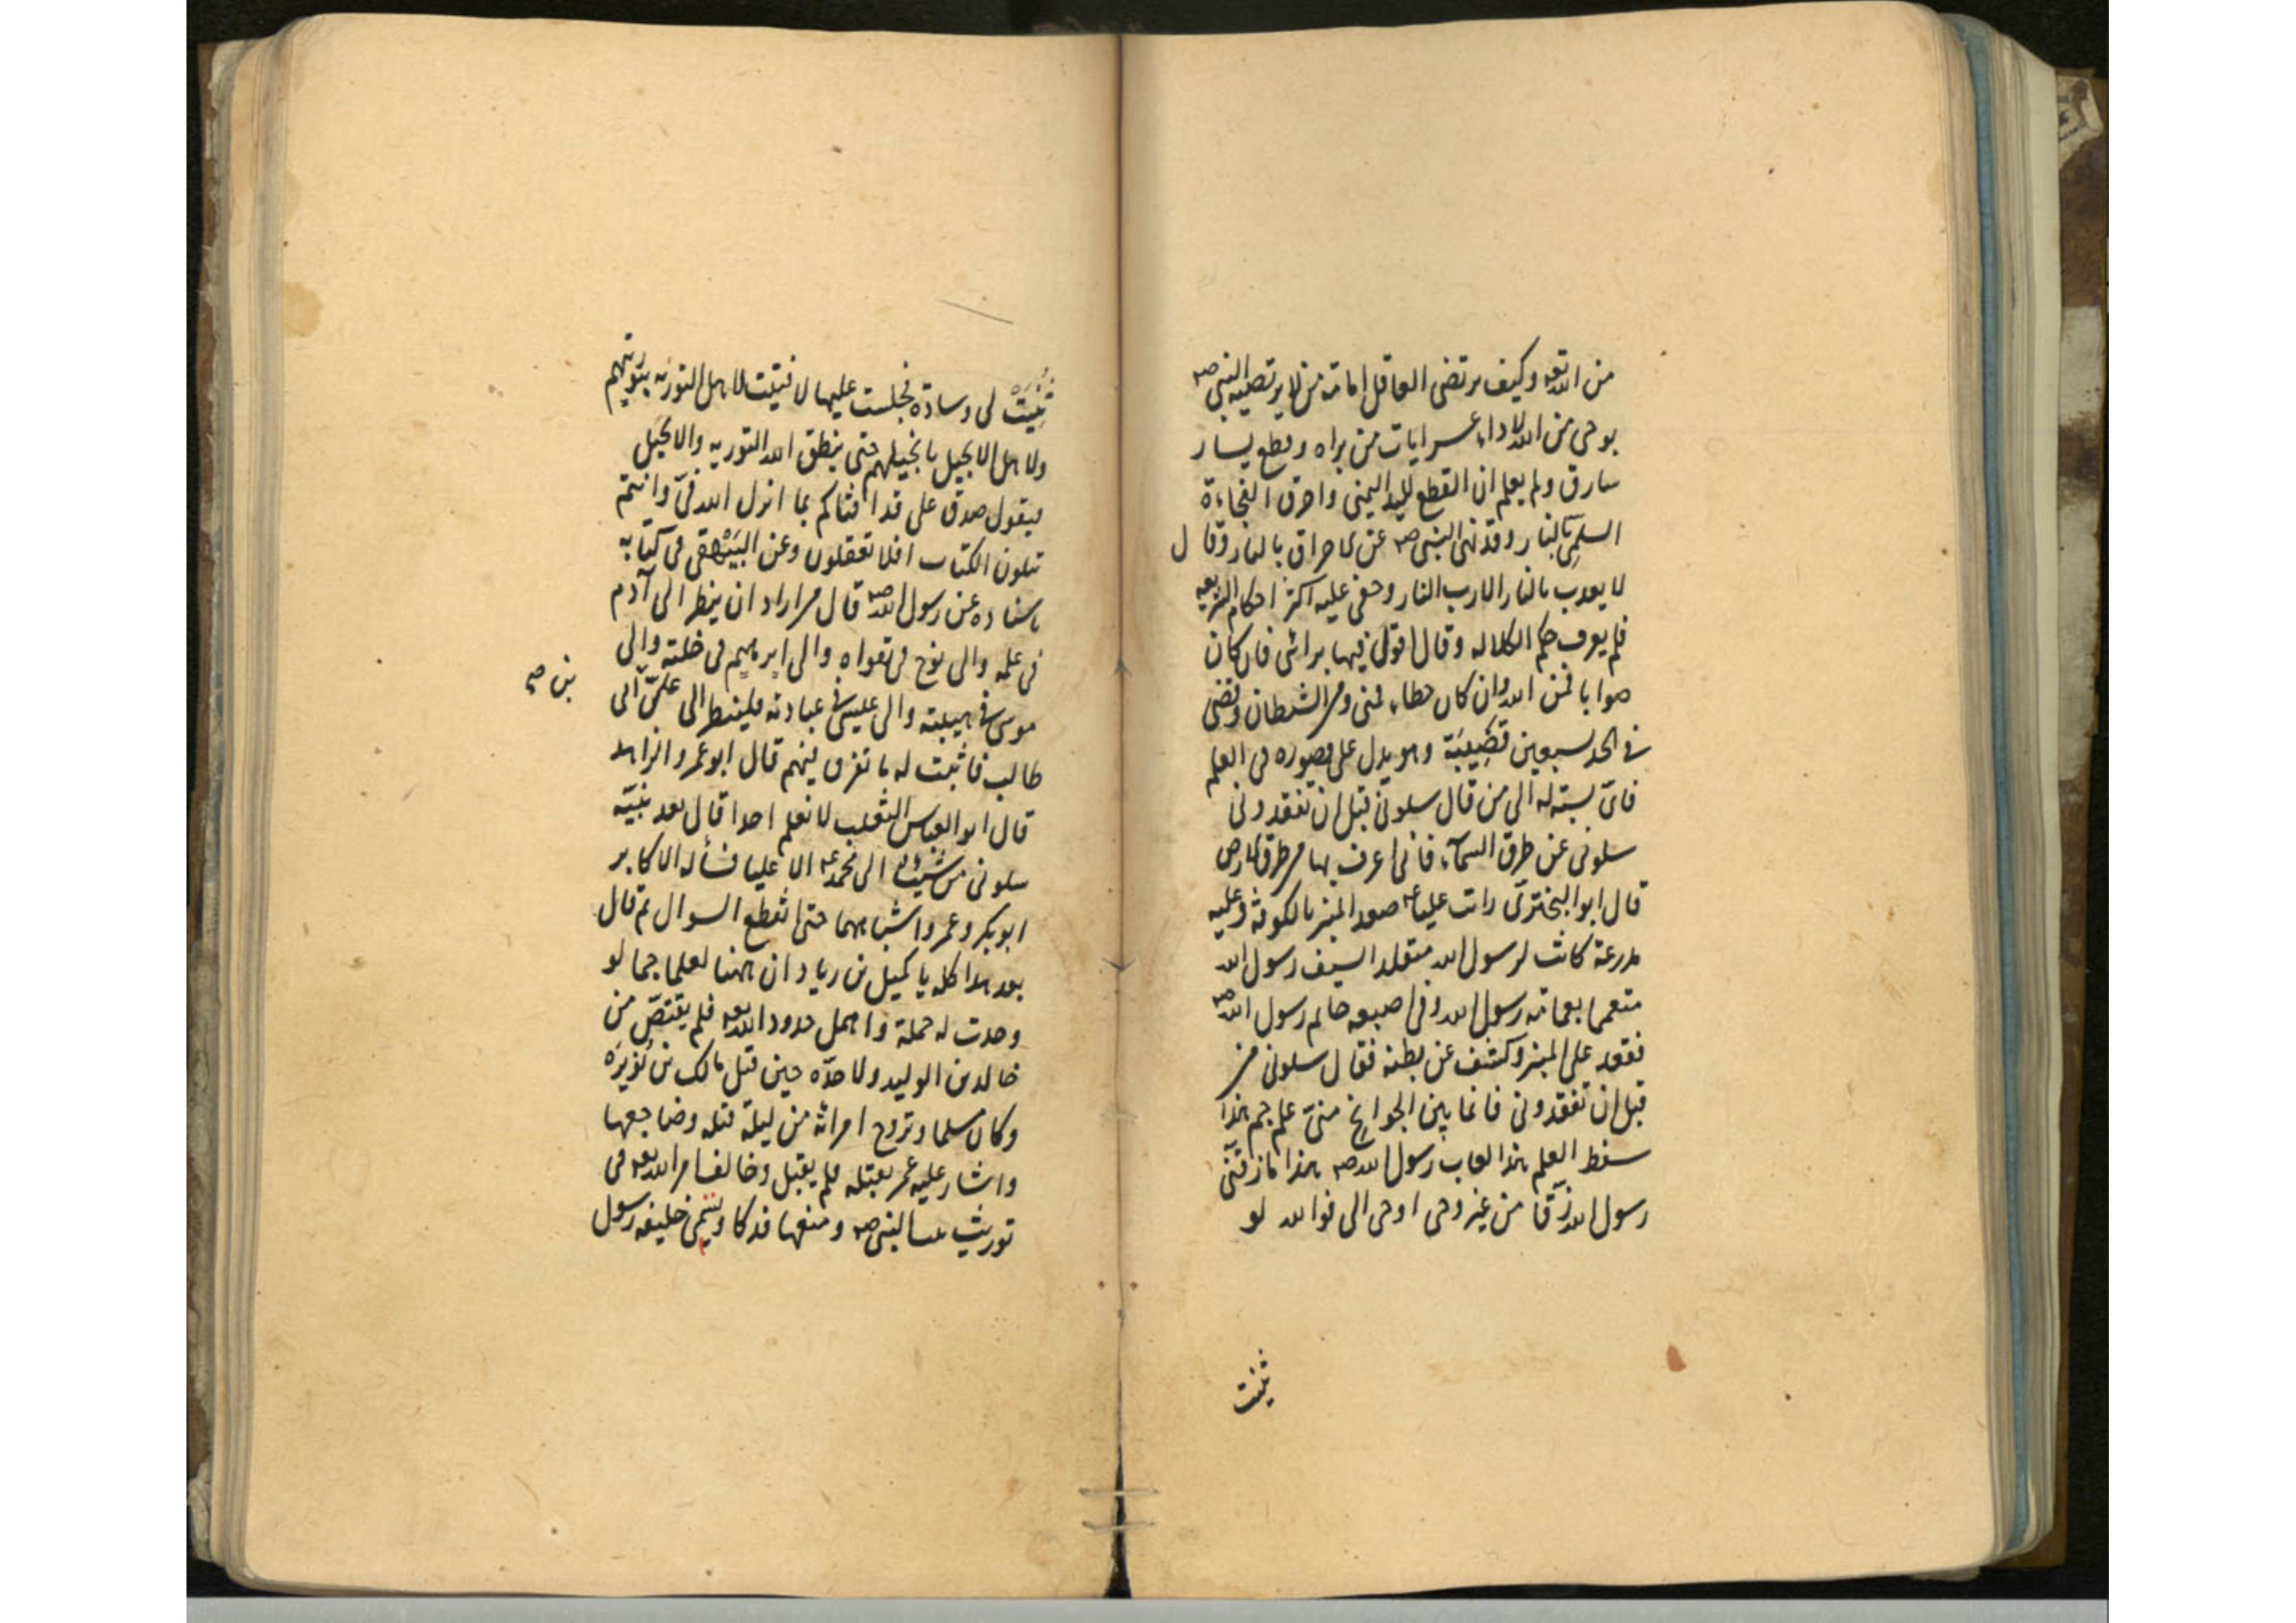 من الله تعه وكيف يرتضى العاقل امامة من لا يرتضيه النبى صه
بوحى من الله لاداء عسر ايات من براه وقطع يسار
سارق ولم يعلم ان القطع لليد اليمنى واحرق الفجاءة
السلمى بالنار وقد نهى النبى صه عن الاحراق بالنار وقال
لا يعدب بالنار الا رب النار وخفى عليه اكثر احكام الشريعه
فلم يعرف حكم الكلاله وقال اقول فيها برائى فان كان
صوابا فمن الله وان كان خطاء فمنى ومن الشيطان وقضى
فى الحد سبعين قضيبة وهو يدل على قصوره فى العلم
فاى نسبة له الى من قال سلونى قبل ان تفقدونى
سلونى عن طرق السماء فانى اعرف بها من طرق الارض
قال ابو البخترى رايت عليا عه صعد المنبر بالكوفة وعليه
مدرعة كانت لرسول الله متقلدا بسيف رسول الله
متعمما بعمامة رسول الله وفى اصبعه خاتم رسول الله صه
فقعد على المنبر وكشف عن بطنه فقال سلونى من
قبل ان تفقدونى فانما بين الجوانح منى علم جم هذا
سفط العلم هذا لعاب رسول الله صه هذا ما زقنى
رسول الله زقا من غير وحى اوحى الى فوالله لو
ثنيت
ثنيت لى وسادة فجلست عليها لافتيت لاهل التوريه بتوريتهم
ولاهل الانجيل بانجيلهم حتى ينطق الله التوريه والانجيل
فيقول صدق على قد افتاكم بما انزل الله فى وانتم
تتلون الكتاب افلا تعقلون وعن البيهقى فى كتابه
باسناده عن رسول الله صه قال من اراد ان ينظر الى آدم
فى علمه والى نوح فى تقواه والى ابرهيم فى خلته والى
موسى فى هيبته والى عيسى فى عبادته فلينظر الى على الى
بن صه
طالب فاثبت له ما تفرق فيهم قال ابو عمرو الزاهد
قال ابو العباس الثعلب لا نعلم احدا قال بعد نبيه
سلونى من شيث الى محمد عه الا عليا فسأله الاكابر
ابو بكر وعمر واشباههما حتى انقطع السوال ثم قال
بعد هذا كله يا كميل بن زياد ان ههنا لعلما جما لو
وجدت له حملة واهمل حدود الله تعه فلم يقتص من
خالد بن الوليد ولا حده حين قتل مالك بن نويره
وكان مسلما وتزوج امراته من ليلة قتله وضاجعها
واشار عليه عمر بقتله فلم يقبل وخالف امر الله تعه فى
توريث بنت النبى صه ومنعها فدكا ويسمى خليفة رسول